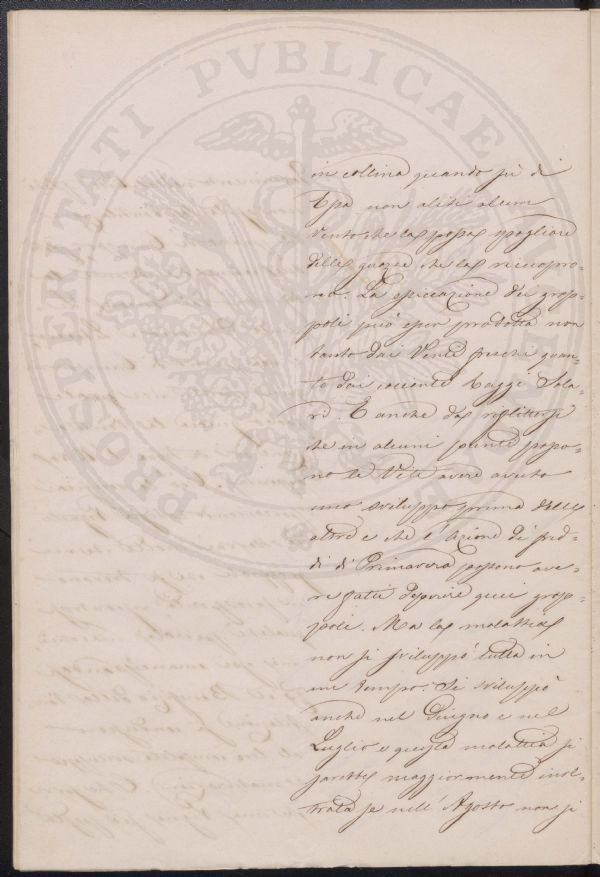 PROSPERITATI PVBLICAE
in collina quando su di
Essa non aliti alcun
Vento che la possa spogliare
delle guazze che la ricuopro-
no. La essicazione dei grop-
poli può esser prodotta non
tanto dai Venti freschi quan-
to dai cocenti Raggi Sola-
ri. È anche da riflettersi
che in alcuni punti posso-
no le Viti avere avuto
uno sviluppo prima delle
altre e che l'azione di fred-
di di Primavera possono ave-
re fatti deperire quei grop-
poli. Ma la malattia
non si sviluppò tutta in
un tempo. Si sviluppò
anche nel Giugno e nel
Luglio e questa malattia si
sarebbe maggiormente inol-
trata se nell'Agosto non si